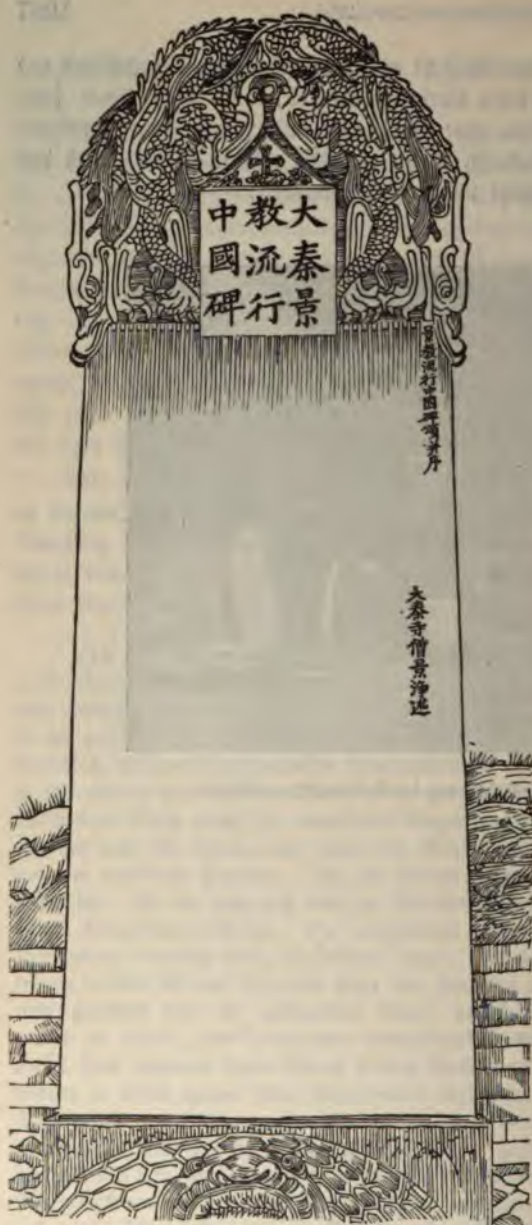 大秦景
教流行
中國碑
景教流行中國碑頌并序
大秦寺僧景淨述